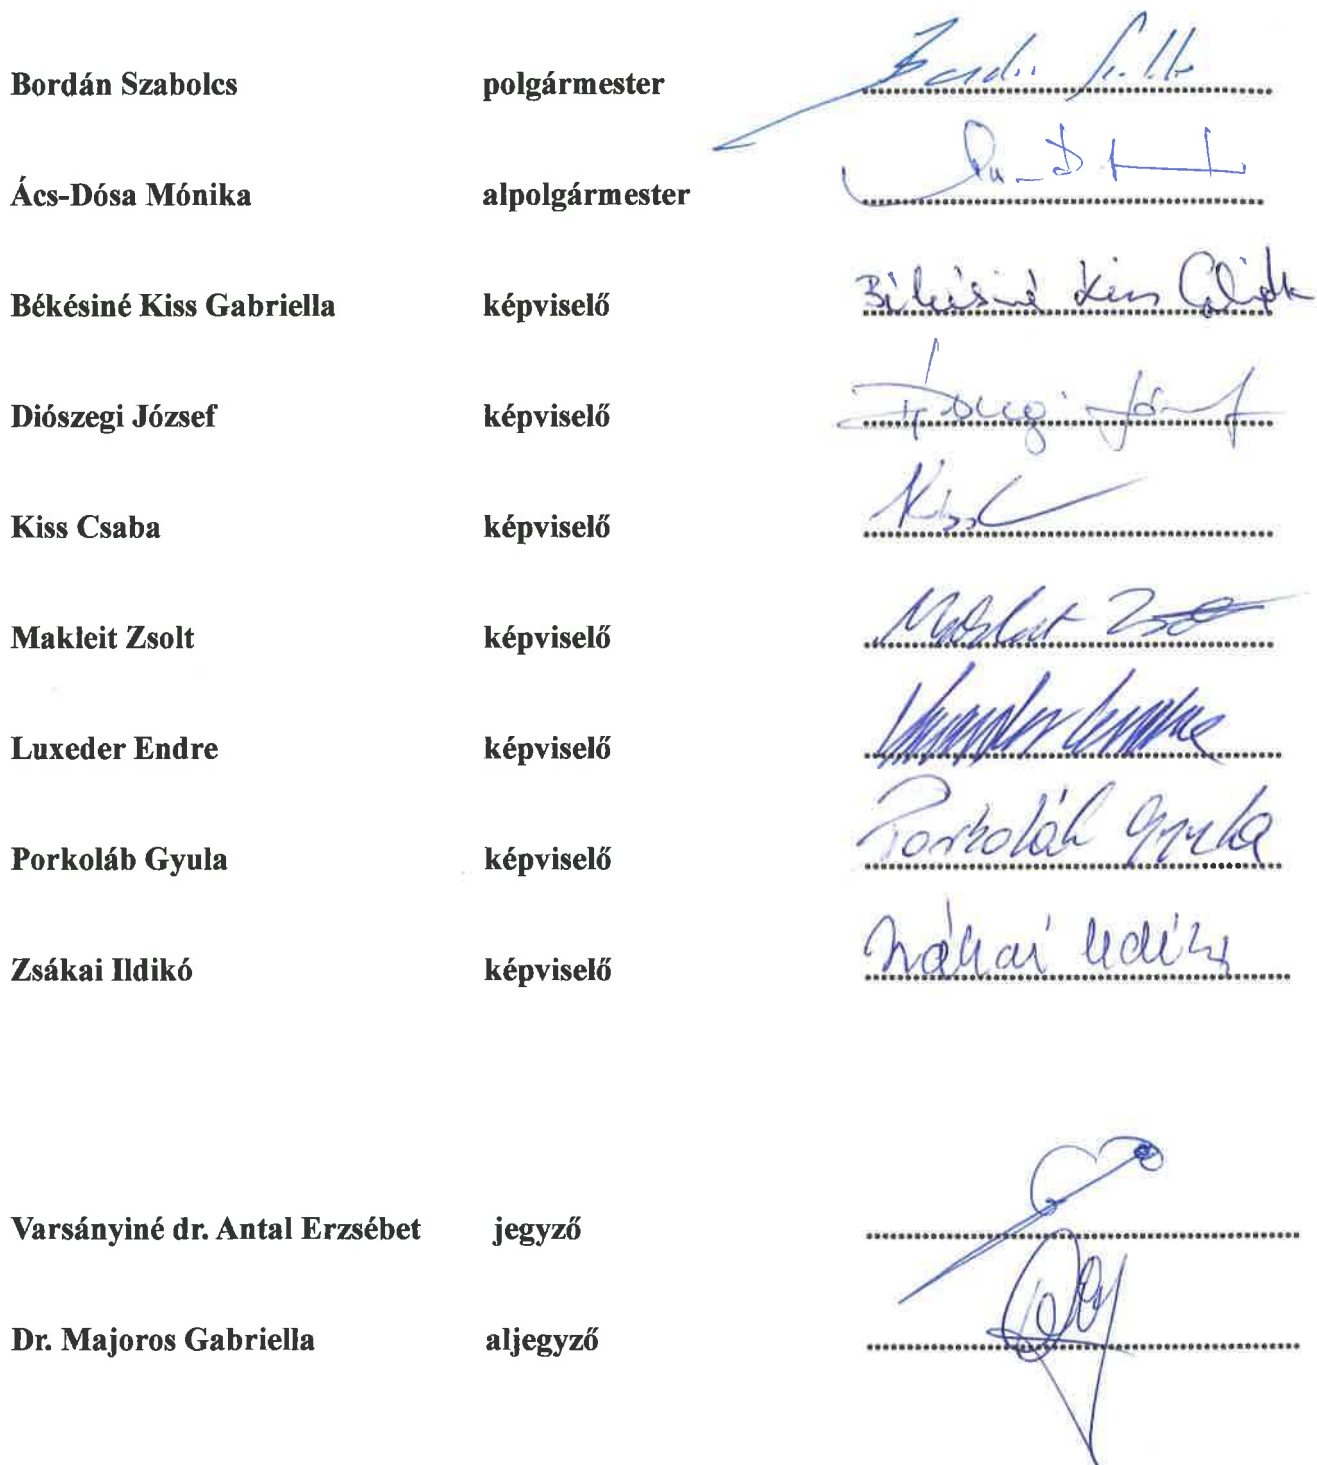 Bordán Szabolcs polgármester
Ács-Dósa Mónika alpolgármester
Békésiné Kiss Gabriella képviselő Békésiné Kiss
Diószegi József képviselő
Kiss Csaba képviselő Kiss
Makleit Zsolt képviselő
Luxeder Endre képviselő
Porkoláb Gyula képviselő Porkoláb Gyula
Zsákai Ildikó képviselő
Varsányiné dr. Antal Erzsébet jegyző
Dr. Majoros Gabriella aljegyző